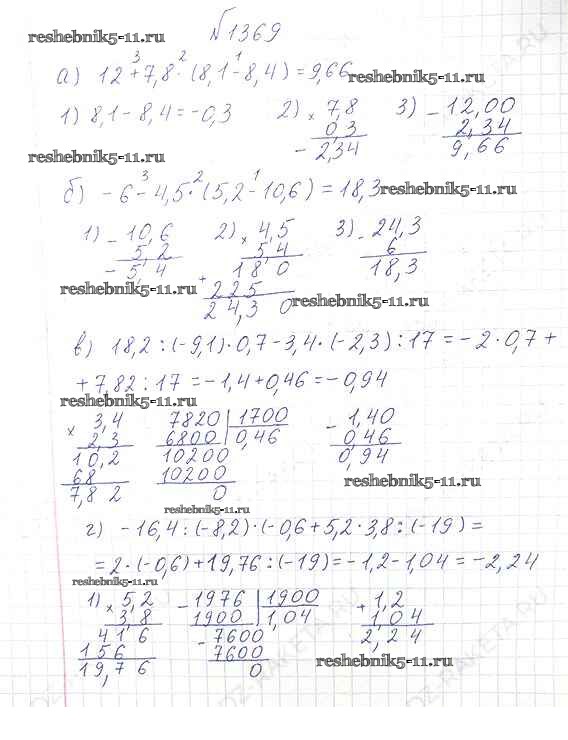 №1369
reshebnik5-11.ru
3 2 1
а) 12+7,8·(8,1-8,4)=9,66 reshebnik5-11.ru
1) 8,1-8,4=-0,3 2) × 7,8 3) - 12,00
0,3 2,34
-2,34 9,66
reshebnik5-11.ru
3 2 1
б) -6-4,5·(5,2-10,6)=18,3 reshebnik5-11.ru
1) - 10,6 2) × 4,5 3) - 24,3
5,2 5,4 6
-5,4 + 18 0 18,3
reshebnik5-11.ru 225 reshebnik5-11.ru
24,3 0
в) 18,2:(-9,1)·0,7-3,4·(-2,3):17=-2·0,7+
+7,82:17=-1,4+0,46=-0,94
reshebnik5-11.ru
× 3,4 7820 | 1700 - 1,40
2,3 6800 | 0,46 0,46
10,2 10200 0,94
68 10200 reshebnik5-11.ru
7,82 0
reshebnik5-11.ru
г) -16,4:(-8,2)·(-0,6+5,2·3,8:(-19)=
=2·(-0,6)+19,76:(-19)=-1,2-1,04=-2,24
reshebnik5-11.ru
1) × 5,2 - 1976 | 1900 + 1,2
3,8 1900 | 1,04 1,04
416 - 7600 2,24
156 7600
19,76 0 reshebnik5-11.ru
DZ-RAKETA.RU